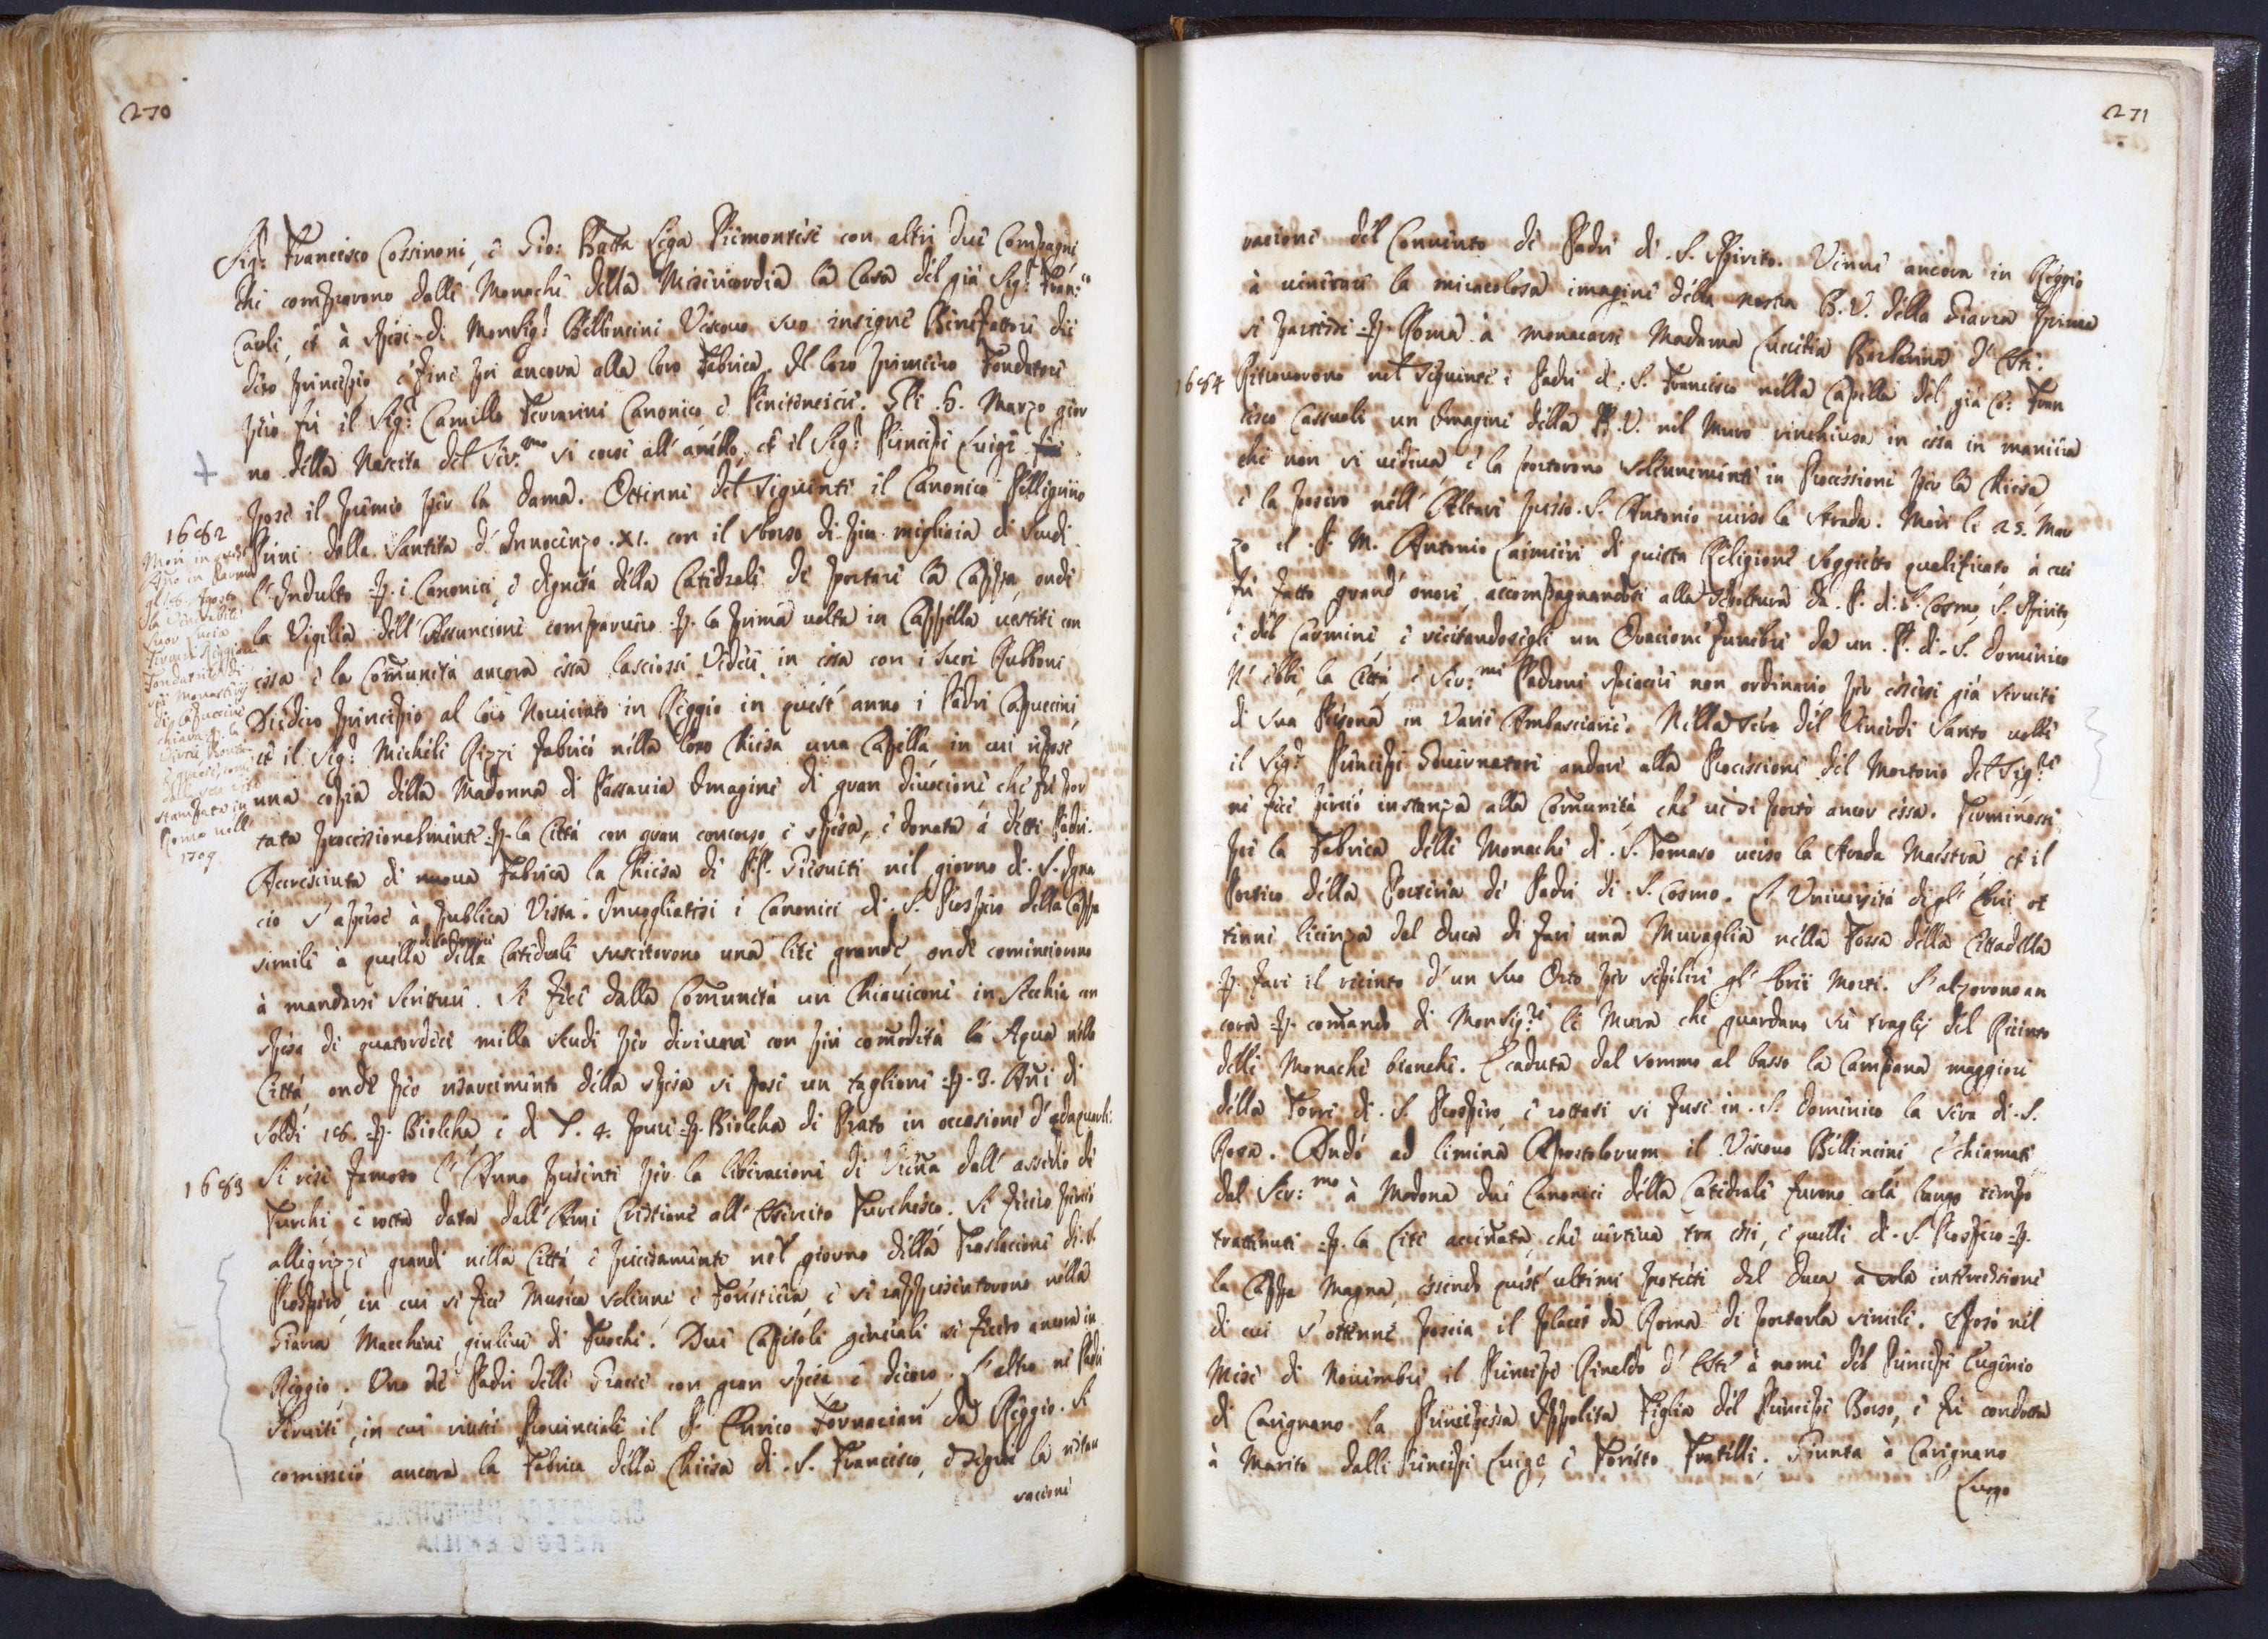 270
Sig.r Francesco Cossinoni, e Gio: Batta Lega Piemontesi con altri due Compagni
che comprorono dalle Monache della Misericordia la Casa del già Sig.r Fran:co
Carli, et à spese di Monsig.r Bellincini Vescovo suo insigne Benefattore die
dero principio, e fine poi ancora alla loro Fabrica. Il loro primiero Fondatore
però fù il Sig.r Camillo Ferrarini Canonico e Penitenciere. Gli .6. Marzo gior
no della Nascita del Ser:mo si corse all' anello, et il Sig.r Principe Luigi
pose il premio per la dama. Ottenne del seguente il Canonico Pellegrino
1682
Preni dalla Santità d' Innocenzo .XI. con il sborso di più migliaia di scudi
l' Indulto p. i Canonici, e dignità della Catedrale di portare la Cappa, onde
la Vigilia dell' Assuncione comparvero p. la prima volta in Cappella vestiti con
essa e la Comunità ancora essa lasciossi vedere in essa con i suoi Rubboni
Diedero principio al loro Noviciato in Reggio in quest' anno i Padri Capuccini,
et il Sig.r Michele Rizzi fabricò nella loro Chiesa una Capella, in cui ripose
una copia della Madonna di Passavia Imagine di gran divocione che fù por
tata processionalmente p. la Città con gran concorso, e spesa, e donata à detti Padri.
Mori in
in Parma
la Venerabile
Suor Lucia
Ferrari Reggiana
Fondatrice di
sei Monasterij
di Capuccine
stampata in
Roma nell'
1709
Accresciuta di nuova Fabrica la Chiesa di P.P. Giesuiti nel giorno di .S. Igna
cio s' aperse à publica Vista. Invogliatisi i Canonici di .S. Prospero della Cappa
simile à quella de Canonici della Catedrale suscitorono una lite grande, onde cominciorono
à mandarsi Scritture. Si fece dalla Comunità un Chiavicone in Secchia con
spesa di quatordeci milla scudi per derivare con più comodità la Aqua nella
Città, onde per risarcimento della spesa si pose un taglione p. 3. Ani di
soldi 18. p. Biolcha e d L. 4. pure p. Biolcha di Prato in occasione d' adaquarli:
1683
Si rese famoso l' Anno presente per la liberacione di Viena dall' assedio de
Turchi e rotta data dall' Armi Cristiane all' Essercito Turchesco. Si fecero perciò
allegrezze grandi nella Città, e precisamente nel giorno della Traslacione di .S.
Prospero, in cui si fece Musica solenne e Forestiera, e si rappresentorono nella
Giarra Macchine, giulive di Fuochi. Due Capitoli generali si fecero ancora in
Reggio. Uno de Padri delle Gracie con gran spesa e decoro. L' altro ne Padri
Serviti, in cui riuscì Provinciale il P. Enrico Fornaciari da Reggio. Si
cominciò ancora la Fabrica della Chiesa di .S. Francesco, e seguì la ristau
racione
271
racione del Convento de Padri di .S. Spirito. Venne ancora in Reggio
à venerare la miracolosa imagine della nostra B.V. della Giarra prima
si partisse p. Roma à monacarsi Madama Lucrecia Barberina d' Este.
1684
Ritrovorono nel seguente i Padri di .S. Francesco nella Capella del già Co: Fran
cesco Cassoli un Imagine della B.V. nel Muro rinchiusa in essa in maniera
che non si vedeva, e la portorono solennemente in Processione per la Chiesa,
e la posero nell' Altare presso .S. Antonio verso la strada. Morì li 25. Mar
zo il P. M. Antonio Caimieri di questa Religione soggietto qualificato à cui
fù fatto grand' onore, accompagnandosi alla Sepoltura da P. di S. Cosmo, S. Spirito,
e del Carmine, e recitandosegli un Oracione funebre da un P. di .S. Domenico
N' ebbe la Città, e Ser:mi Padroni spiacere non ordinario per essersi già serviti
di sua Persona in Varie Ambasciarie. Nella sera del Venerdi Santo volle
il Sig.r Principe Governatore andare alla Processione del Mortorio del Sig.re
ne fece perciò instanza alla Comunità che vi si portò ancor essa. Terminossi
poi la Fabrica delle Monache di .S. Tomaso verso la strada Maestra et il
Portico della Porteria de Padri di .S. Cosmo. L' Università degl' Ebrei ot
tenne licenza dal Duca di fare una Muraglia nella Fossa della Cittadella
p. fare il recinto d' un suo Orto per sepelire gl' Ebrei Morti. S' alzorono an
cora p. comando di Monsig.re le Mura che guardano sù traglij del Recinto
delle Monache bianche. E caduta dal sommo al basso la Campana maggiore
della Torre di .S. Prospero, e rottasi si fuse in .S. Domenico la sera di .S.
Rosa. Andò ad limina Apostolorum il Vescovo Bellincini E chiamati
dal Ser:mo à Modona due Canonici della Catedrale furono colà lungo tempo
trattenuti p. la lite accinata, che verteva tra essi, e quelli di .S. Prospero p.
la Cappa Magna, essendo quest' ultimi protetti dal Duca, à sola intercessione
di cui s' ottenne poscia il placet da Roma di portarla simile. Sposò nel
Mese di Novembre il Principe Rinaldo d' Este à nome del Principe Eugenio
di Carignano la Principessa Ippolita Figlia del Principe Borso, e fù condotta
à Marito dalli Principi Luigi, e Foresto Fratelli. Giunta à Carignano
Luogo